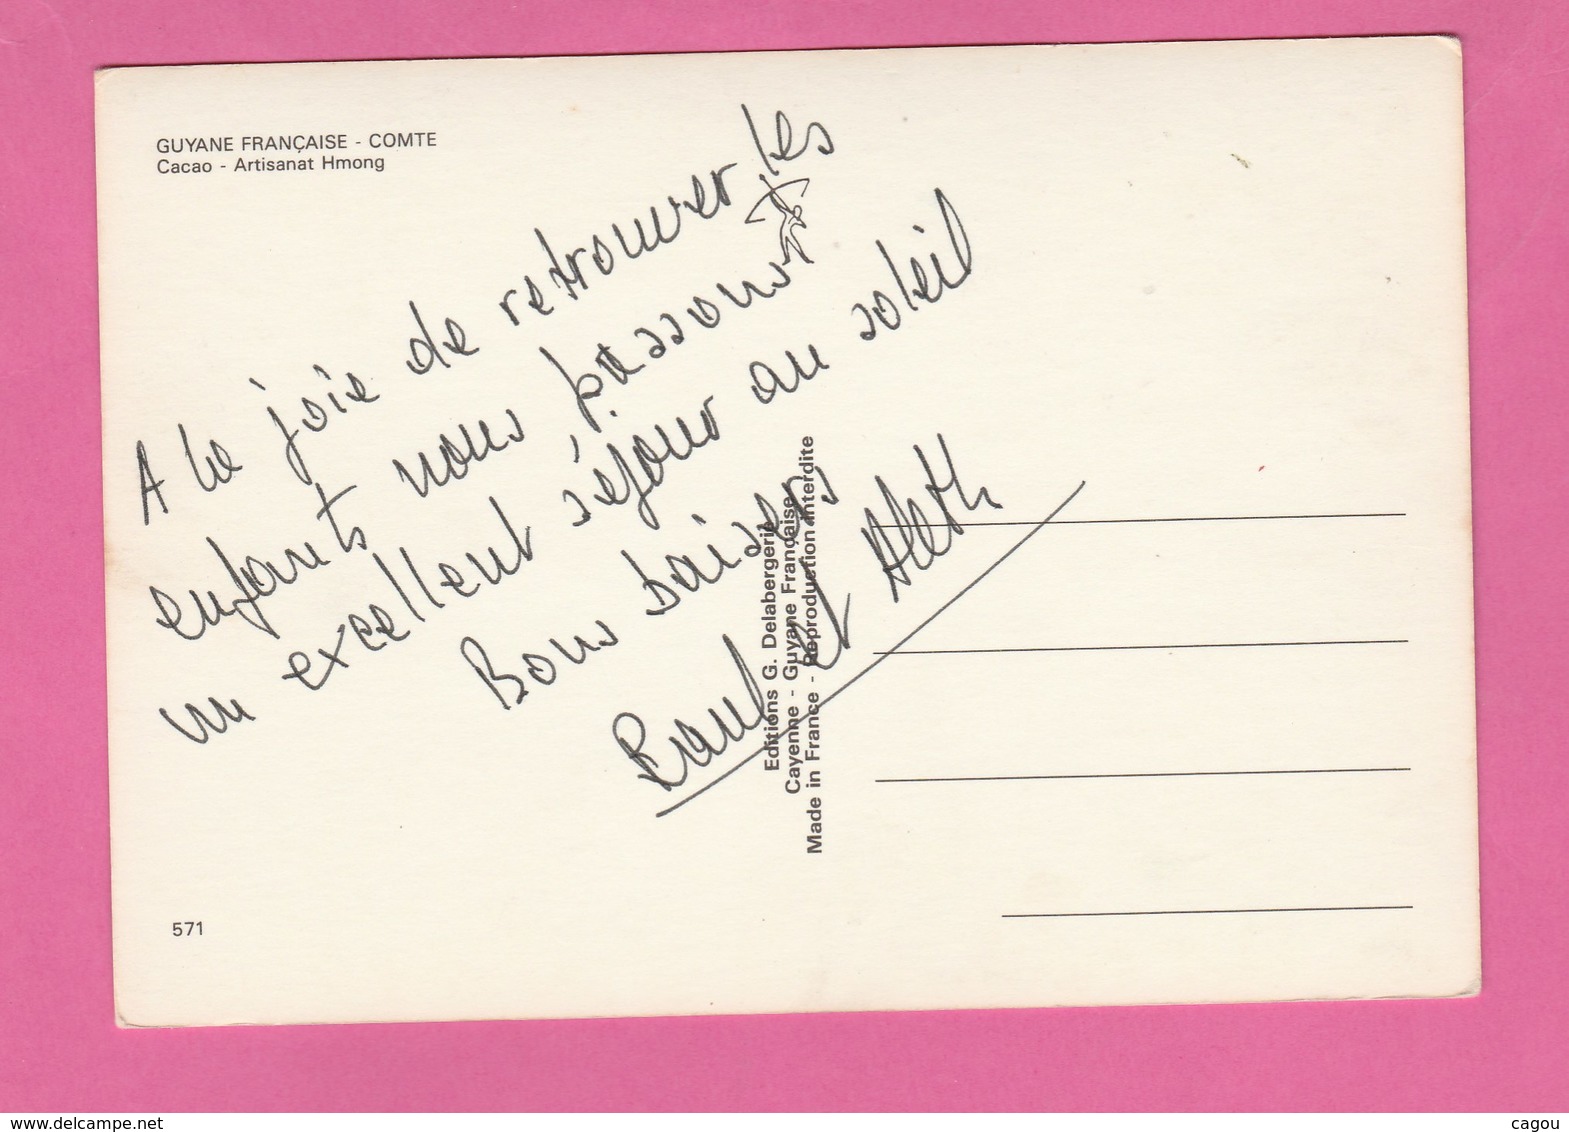 GUYANE FRANÇAISE - COMTE
Cacao - Artisanat Hmong
A la joie de retrouver les
enfants nous passons
un excellent séjour au soleil
Bons baisers
Raoul et Aleth
Editions G. Delabergerie
Cayenne - Guyane Française
Made in France - Reproduction interdite
571
www.delcampe.net
cagou